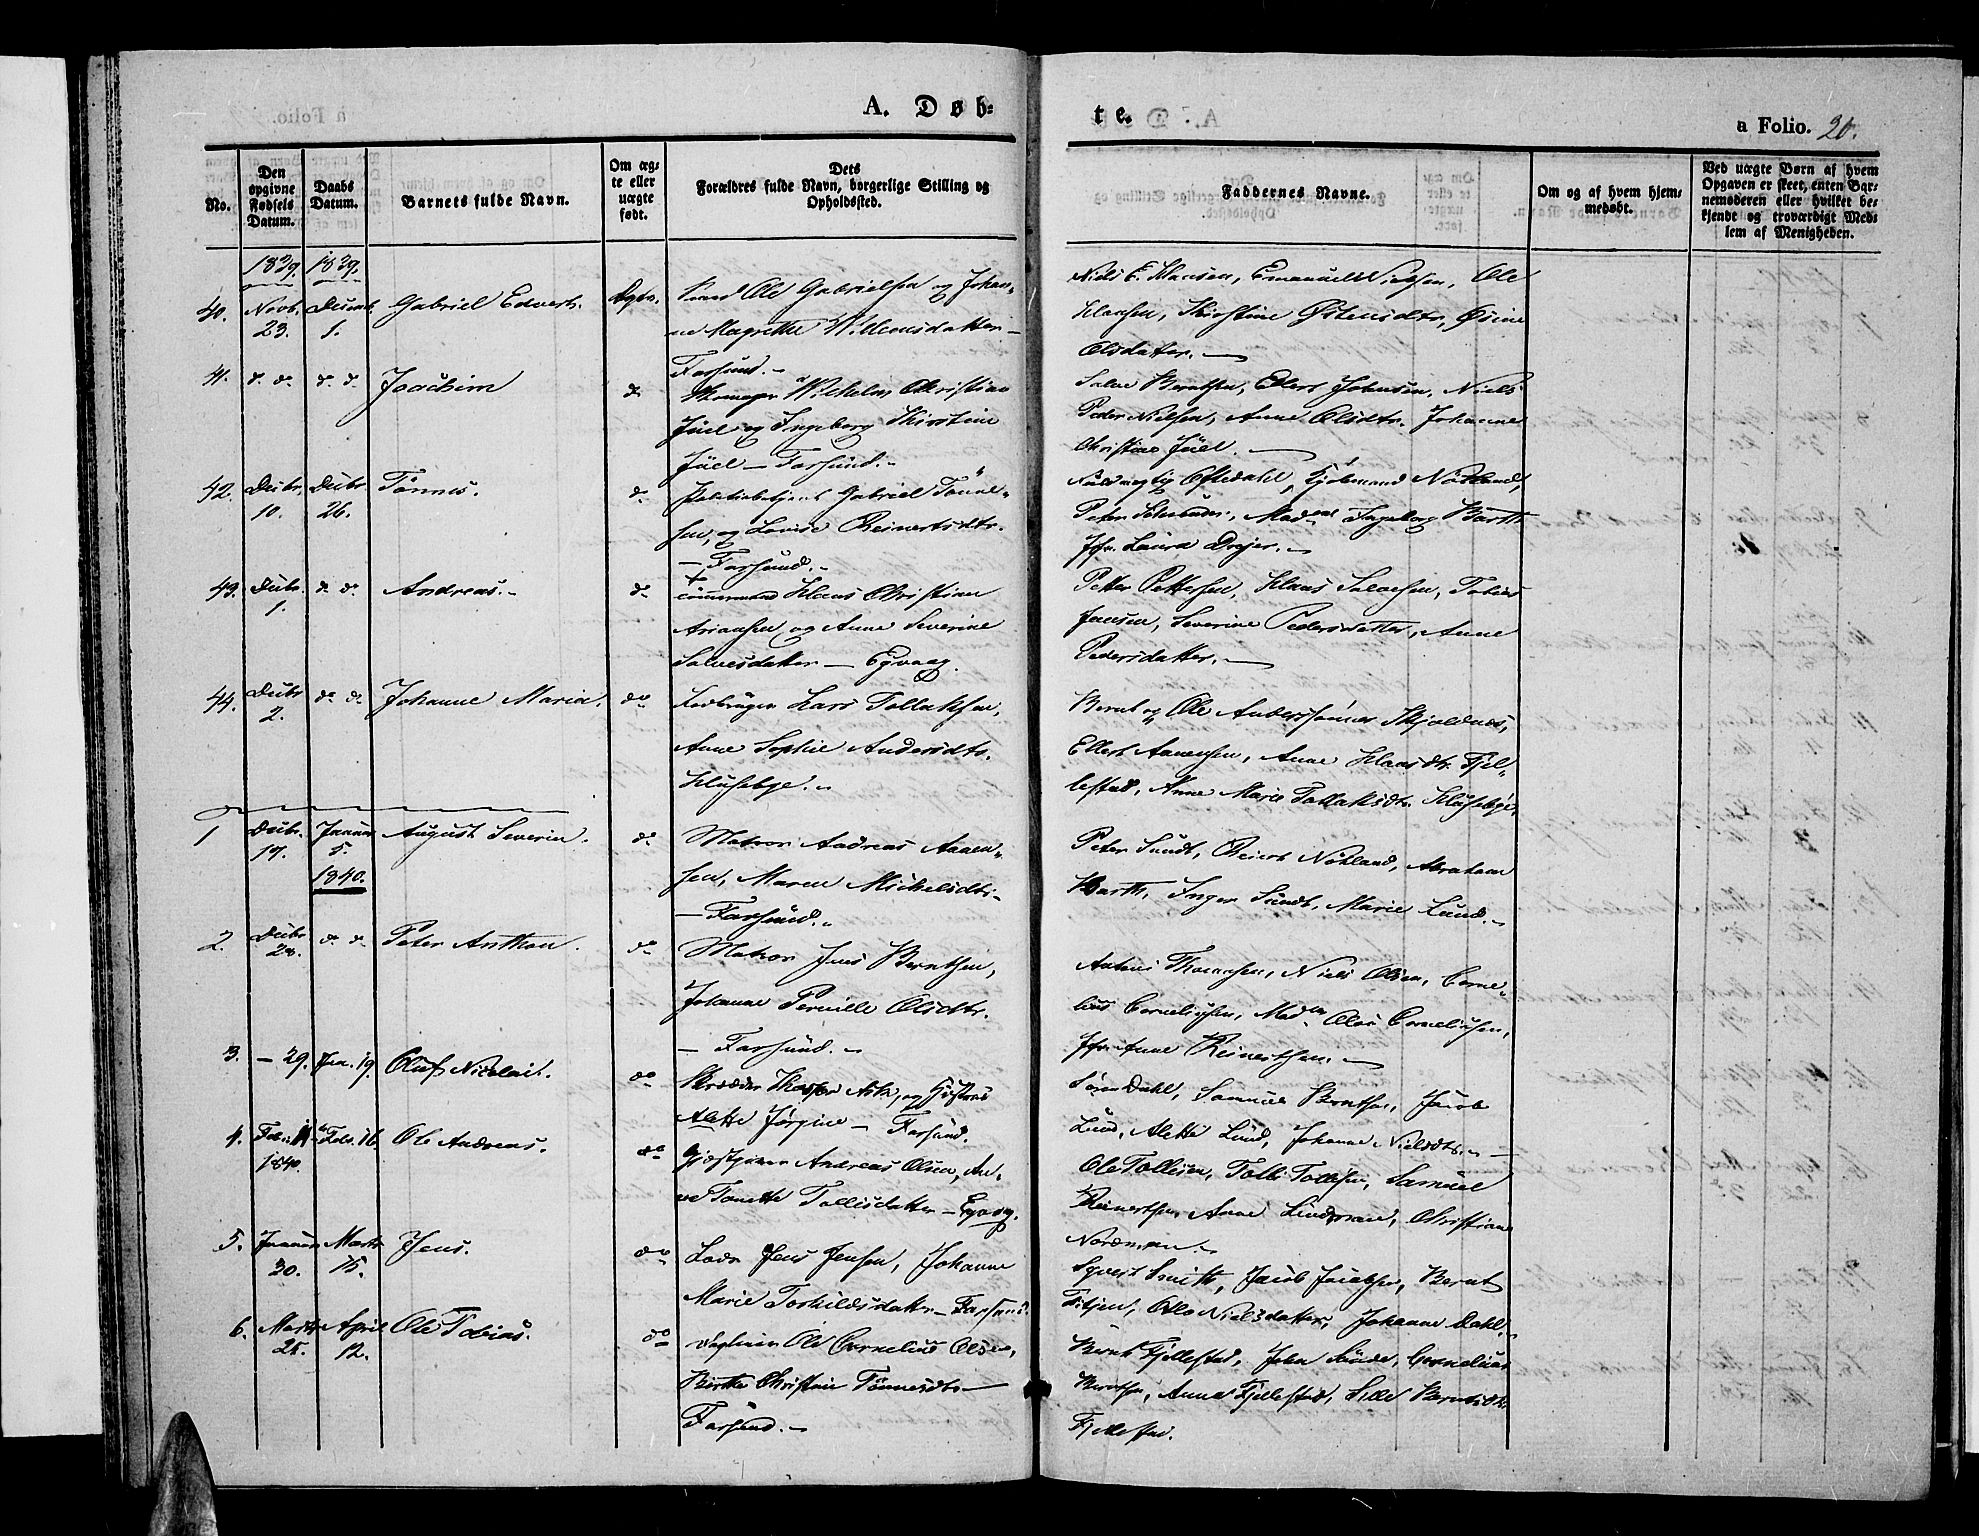 A. Døb=
te.
a Folio. 20.
No.
Den opgivne Fødsels Datum.
Daabs Datum.
Barnets fulde Navn.
Om æg= te eller uægte født.
Dets Forældres fulde Navn, borgerlige Stilling og Opholdssted.
Faddernes Navne.
Om og af hvem hjem= medøbt.
Ved uægte Børn af hvem Opgaven er skeet, enten Bar= nemoderen eller hvilket be= kjendt og troværdigt Med= lem af Menigheden.
1839. 1839.
40. Novb. 23. Decmb. 1. Gabriel Edvert. Ægte.
Ole Gabrielsen og Johan=
ne Magrethe Willumsdatter —
Farsund. —
Niels E. Hansen, Emanuel Nielsen, Ole
Klausen, Kirstine Østensdtr, Øsine
Olsdatter. —
41. d. do. d. d. Joachim d.
Wilhelm Christian
Jüel og Ingeborg Kirstine
Jüel — Farsund. —
Berntsen, Edert Johnsen, Niels
Peder Nielsen, Anne Olsdtr. Johanne
Christine Jüel. —
42. Decbr. 10. Decbr 26. Tønnes. d.
Politiebetjent Gabriel Tønne=
sen, og Lovise Reinertsdtr.
— Farsund. —
Fuldmægtig Oftedahl, Kjøbmand Nøtland,
Peter, Mad. Ingeborg Barth
Jfr. Laura Drejer. —
43. Decbr. 1. d. do. Andreas. — d.
Klaus Christian
Ariansen og Anne Severine
Salvesdatter — Egvaag.
Petter Pettersen, Klaus Salvesen, Tobias
Jansen, Severine Pedersdatter, Anne
Pedersdatter. —
44. Decbr 2. do. do. Johanne Maria. do
Lars Tollaksen,
Anne Sophie Andersdtr.
Klusebye. —
Bernt og Ole Anderssønner Skjoldnes,
Ellert Aanensen, Anne Klausdtr. Fjel=
lestad, Anne Marie Tollaksdtr. Klusebye,
1 Decbr. 17. Januar 5. 1840. August Severin. do.
Matros Andreas Aanen=
sen, Maren Mickelsdtr.
— Farsund. —
Peter Sundt, Reinert Nøtland, Abraham
Barth, Inger Sundt, Marie Lund. —
2. Decbr 28. d. do Peter Anthon. do
Matros Jens Berntsen,
Johanne Pernille Olsdtr.
— Farsund. —
Antoni Thomasen, Niels Olsen, Corne=
lius Corneliusen, Mad. Olea Corneliusen,
Jfr. Anne Reinertsen. —
3. — 29. Jan. 19. Oluf Nicolai. do
Skrædder Ask, og Hustrue
Alette Jørgine — Farsund.
Søren Dahl, Samuel Berntsen, Jacob
Lund, Alette Lund, Johanne Nielsdtr. —
4. 1840. Feb. 16. Ole Andreas. do
Gjæstgiver Andreas Olsen, An=
ne Tonette Tollisdatter — Egvaag.
Ole Tollisen, Tolli Tollisen, Samuel
Reinertsen, Anne Lindman, Christian
Nordman. —
5. Januar 30. Marts 15. Jens. do
Lods Jens Jensen, Johanne
Marie Torkildsdatter — Farsund.
Syvert Smith, Jacob Jacobsen, Bernt
Nielsdatter, Johanne Dahl,
6. Marts 25. April 12. Ole Tobias. do
Ole Cornelius Olsen,
Berthe Christine Tønnesdtr —
Farsund. —
Bernt Fjellestad, John Sunde, Cornelius
Berntsen, Anna Fjellestad, Sille Berntsdtr.
Fjellestad.